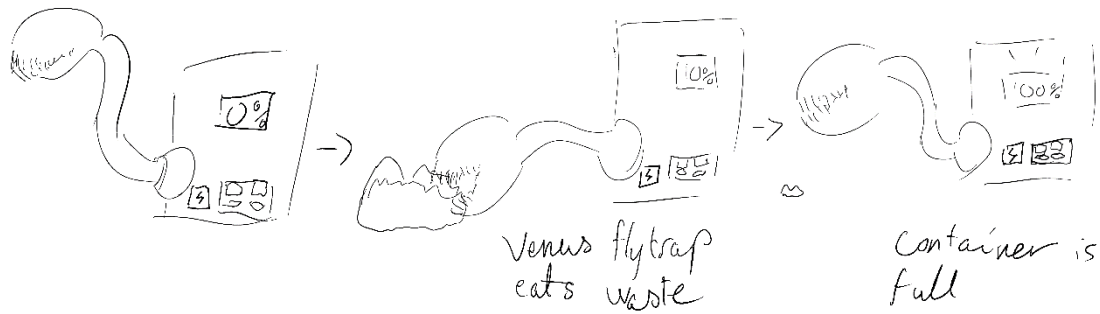 0%
10%
100%
Venus flytrap
eats waste
Container is
full